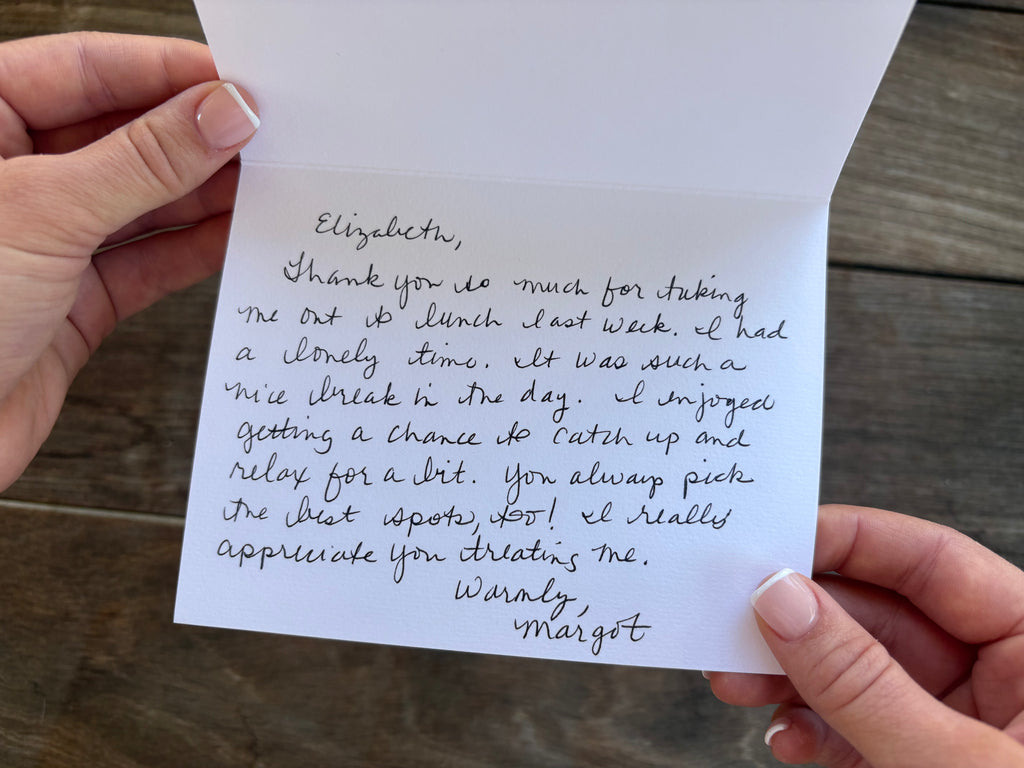 Elizabeth,
Thank you so much for taking
me out to lunch last week. I had
a lovely time. It was such a
nice break in the day. I enjoyed
getting a chance to catch up and
relax for a bit. You always pick
the best spots, too! I really
appreciate you treating me.
Warmly,
Margot